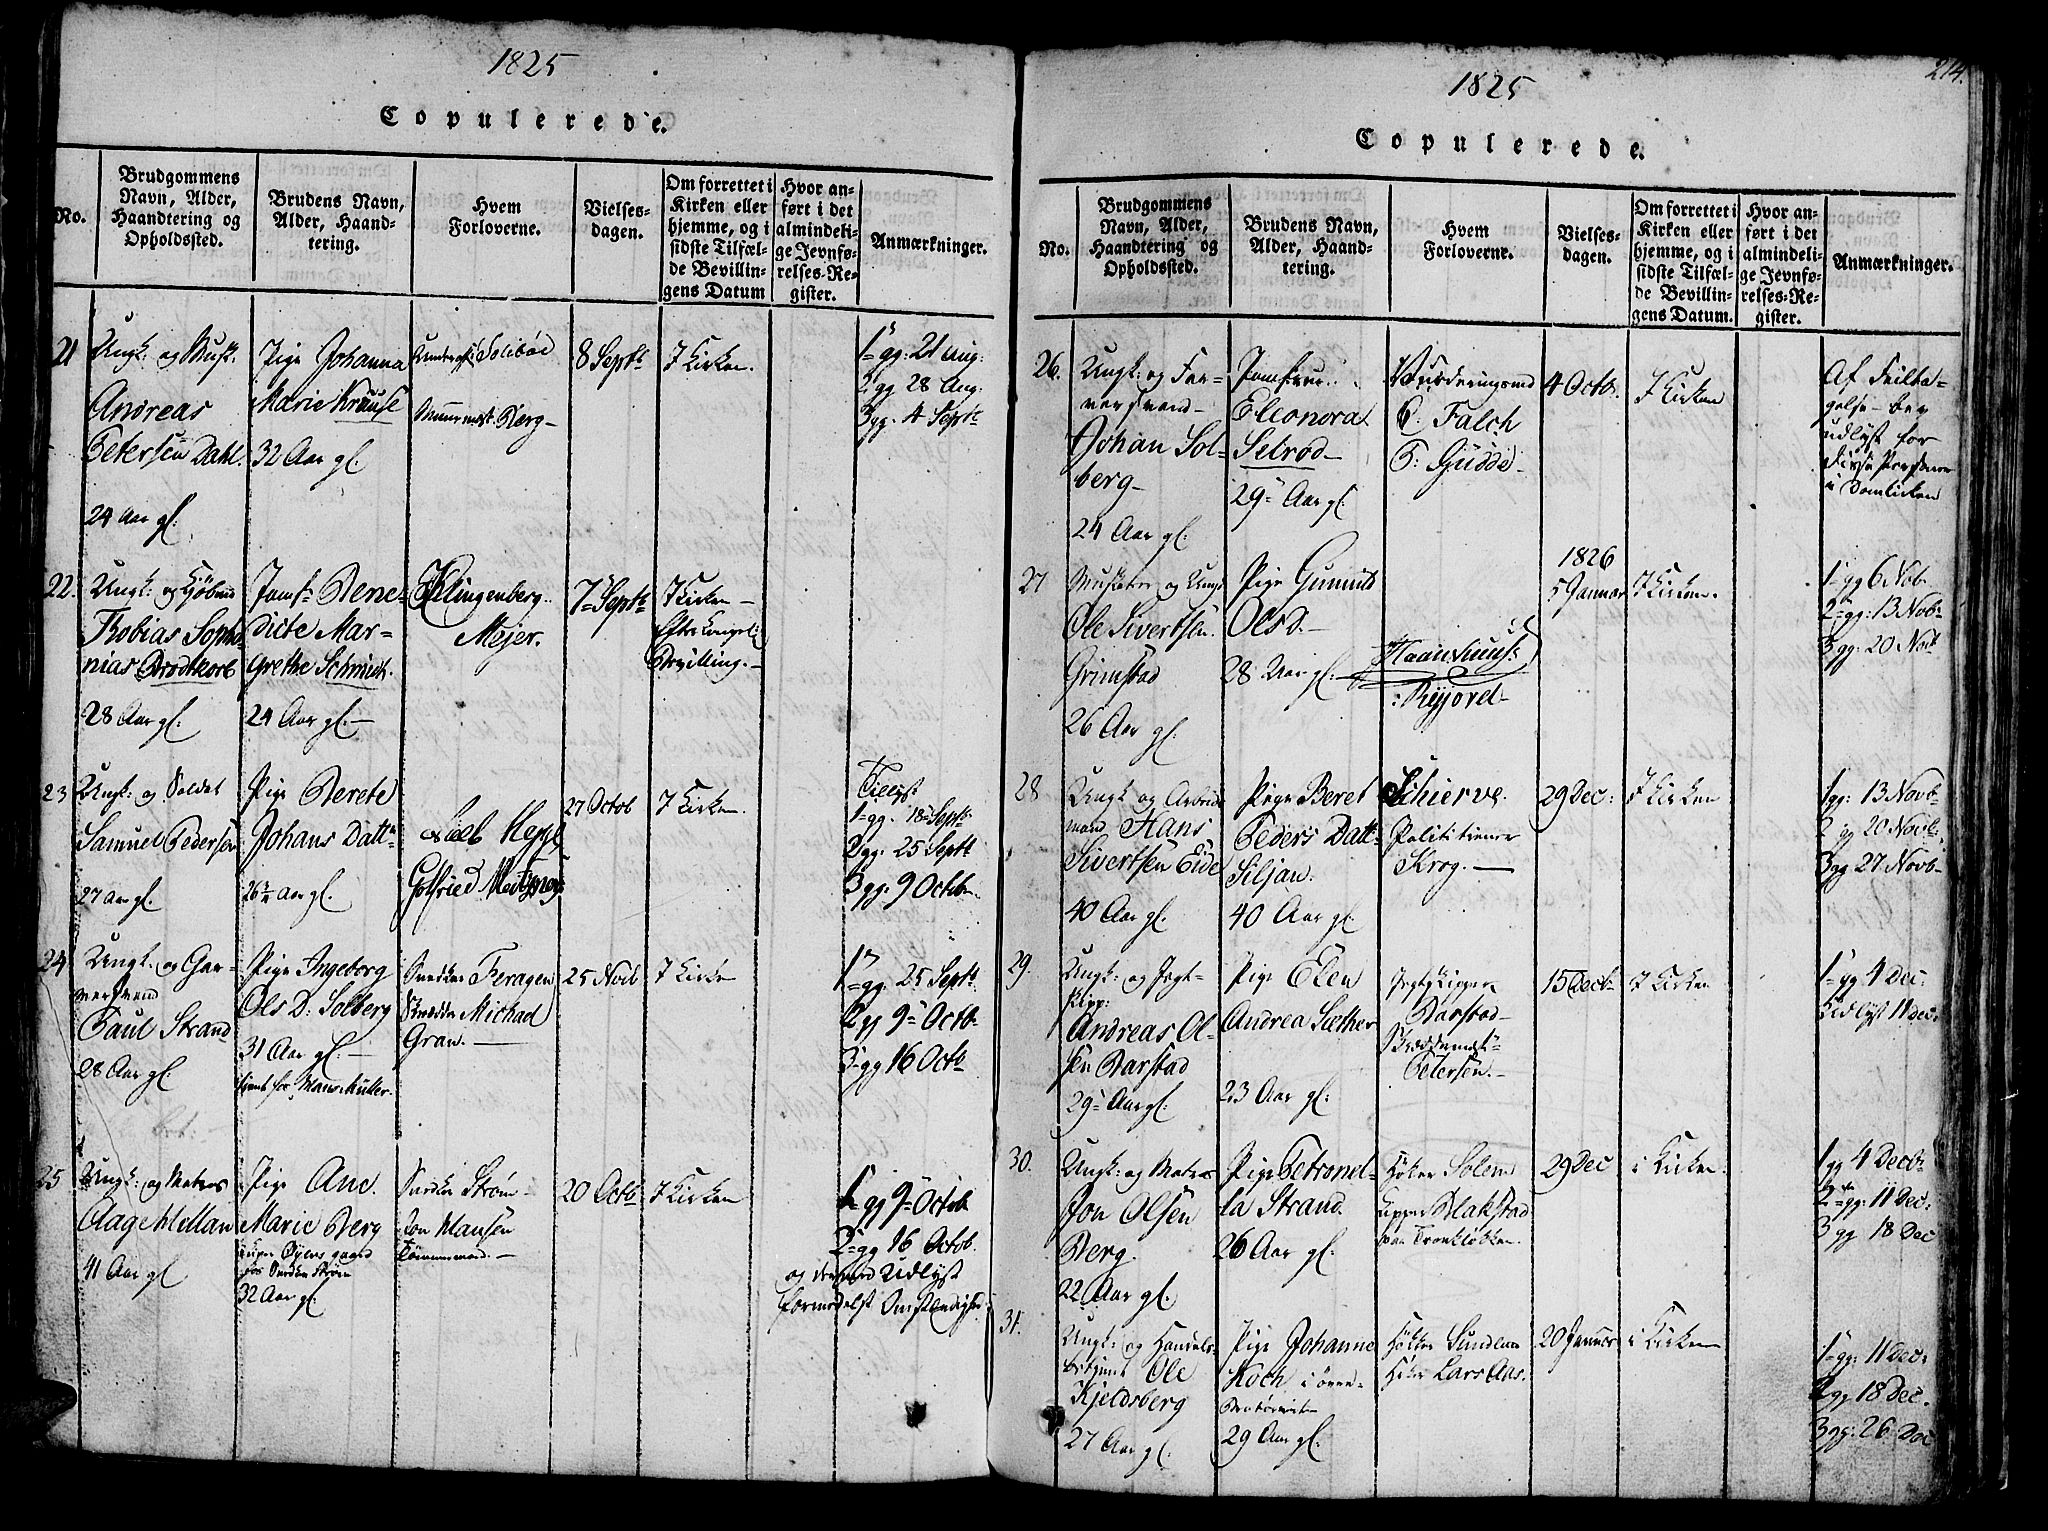 1825
Copulerede.
No.
Brudgommens
Navn, Alder,
Haandtering og
Opholdssted.
Brudens Navn,
Alder, Haand-
tering.
Hvem
Forloverne.
Vielses-
dagen.
Om forrettet i
Kirken eller
hjemme, og i
sidste Tilfæl-
de Bevillin-
gens Datum
Hvor an-
ført i det
almindeli-
ge Jevnfø-
relses-Re-
gister.
Anmærkninger.
21
Ungk: og Musk:
Andreas
Petersen Dahl.
24 Aar gl.
Pige Johanna
Marie Krause
32 Aar gl.
Berg
8 Septr
I Kirken.
1=gg: 21 Aug:
2 gg 28 Aug.
3 gg. 4 Septr
22.
Ungk: og Kjøbmd
Tobias Sopho-
nias Brodtkorb
28 Aar gl.
Jomf: Bene-
dicte Mar-
grethe Schmidt.
24 Aar gl.
Klingenberg.
Mejer.
7 Septr
I Kirken
Efter Kongel:
Bevilling.
23
Ungk: og Soldat
Samuel Pedersen
27 Aar gl.
Pige Berete
Johans Dattr
26½ Aar gl.
27 Octob
I Kirken.
Tillyst
1 gg. 18 Septr
2 gg: 25 Septr
3 gg: 9 Octbr
24
Ungk. og Gar-
versvend
Paul Strand
28 Aar gl.
Pige Ingeborg
Ols D: Solberg
31 Aar gl.
tient for
Snedker Feragen
Skrædder Michael
Gran.
25 Novb
I Kirken
1
gg: 25 Septr
2 gg 9 Octb
3 gg 16 Octb
25
Ungk: og Matros
Aage Mellan
41 Aar gl
Pige Ane
Marie Berg
for Snedker Strøm
32 Aar gl.
Snedker Strøm
Jon Hansen
Tømmermand.
20 Octb
I Kirken
1 gg 9 Octob
2 gg 16 Octob.
og dermed Udlyst
formedelst Omstændighed
1825
214.
Copulerede.
No.
Brudgommens
Navn, Alder,
Haandtering og
Opholdssted.
Brudens Navn,
Alder, Haand-
tering.
Hvem
Forloverne.
Vielses-
dagen.
Om forrettet i
Kirken eller
hjemme, og i
sidste Tilfæl-
de Bevillin-
gens Datum.
Hvor an-
ført i det
almindeli-
ge Jevnfø-
relses-Re-
gister.
Anmærkninger.
26.
Ungk: og Far-
versvend
Johan Sol-
berg
24 Aar gl:
Jomfrue
Eleonora
Selrod
29 Aar gl.
Vurderingsmd
C. Falch
T: Gudde
4 Octb.
I Kirken
Af Feilta-
gelse
udlyst for
disse Personer
i Domkirken
27
Musketer og Ungk
Ole Sivertsen.
Grimstad
26 Aar gl:
Pige Gunnild
Ols D.
28 Aar gl.
1826
5 Januar
I Kirken.
1 gg 6 Nob.
2 gg: 13 Novb
3 gg: 20 Novb
28
Ungk og Arbeids
mand Hans
Sivertsen Eide
40 Aar gl.
Pige Beret
Peders Datt
Siljan.
40 Aar gl.
Schierve.
Politictiener
Krog.
29 Dec:
I Kirken
1 gg: 13 Novb
2 gg 20 Novb.
3 gg 27 Novb
29.
Ungk: og Jegt-
skipp:
Andreas Ol-
sen Barstad
29 Aar gl.
Pige Elen
Andrea Sæther
23 Aar gl:
Jegtskipper
Barstad
Skreddermest
Petersen.
15 Decb
I Kirken
1 gg 4 Dec:
Udlyst 11 Dec:
30.
Ungk: og Matros
Jon Olsen
Berg.
22 Aar gl.
Pige Petronel-
la Strand.
26 Aar gl.
Høker Solem
Skipper Blakstad
paa Tronkløkken.
29 Dec
i Kirken.
1 gg 4 Decb
2 gg: 11 Dec:
3 gg 18 Dec
31.
Ungk: og Handels-
betjent Ole
Kjeldsberg
27 Aar gl.
Pige Johanne
Koch i øvre
29 Aar gl.
Høker Lars Aas.
20 Januar
i Kirken
1 gg: 11 Dec:
2 gg 18 Dec.
3 gg: 26 Dec